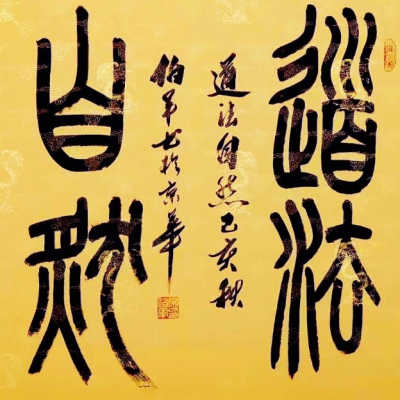 道法
道法自然己亥秋
伯书於京華
自然